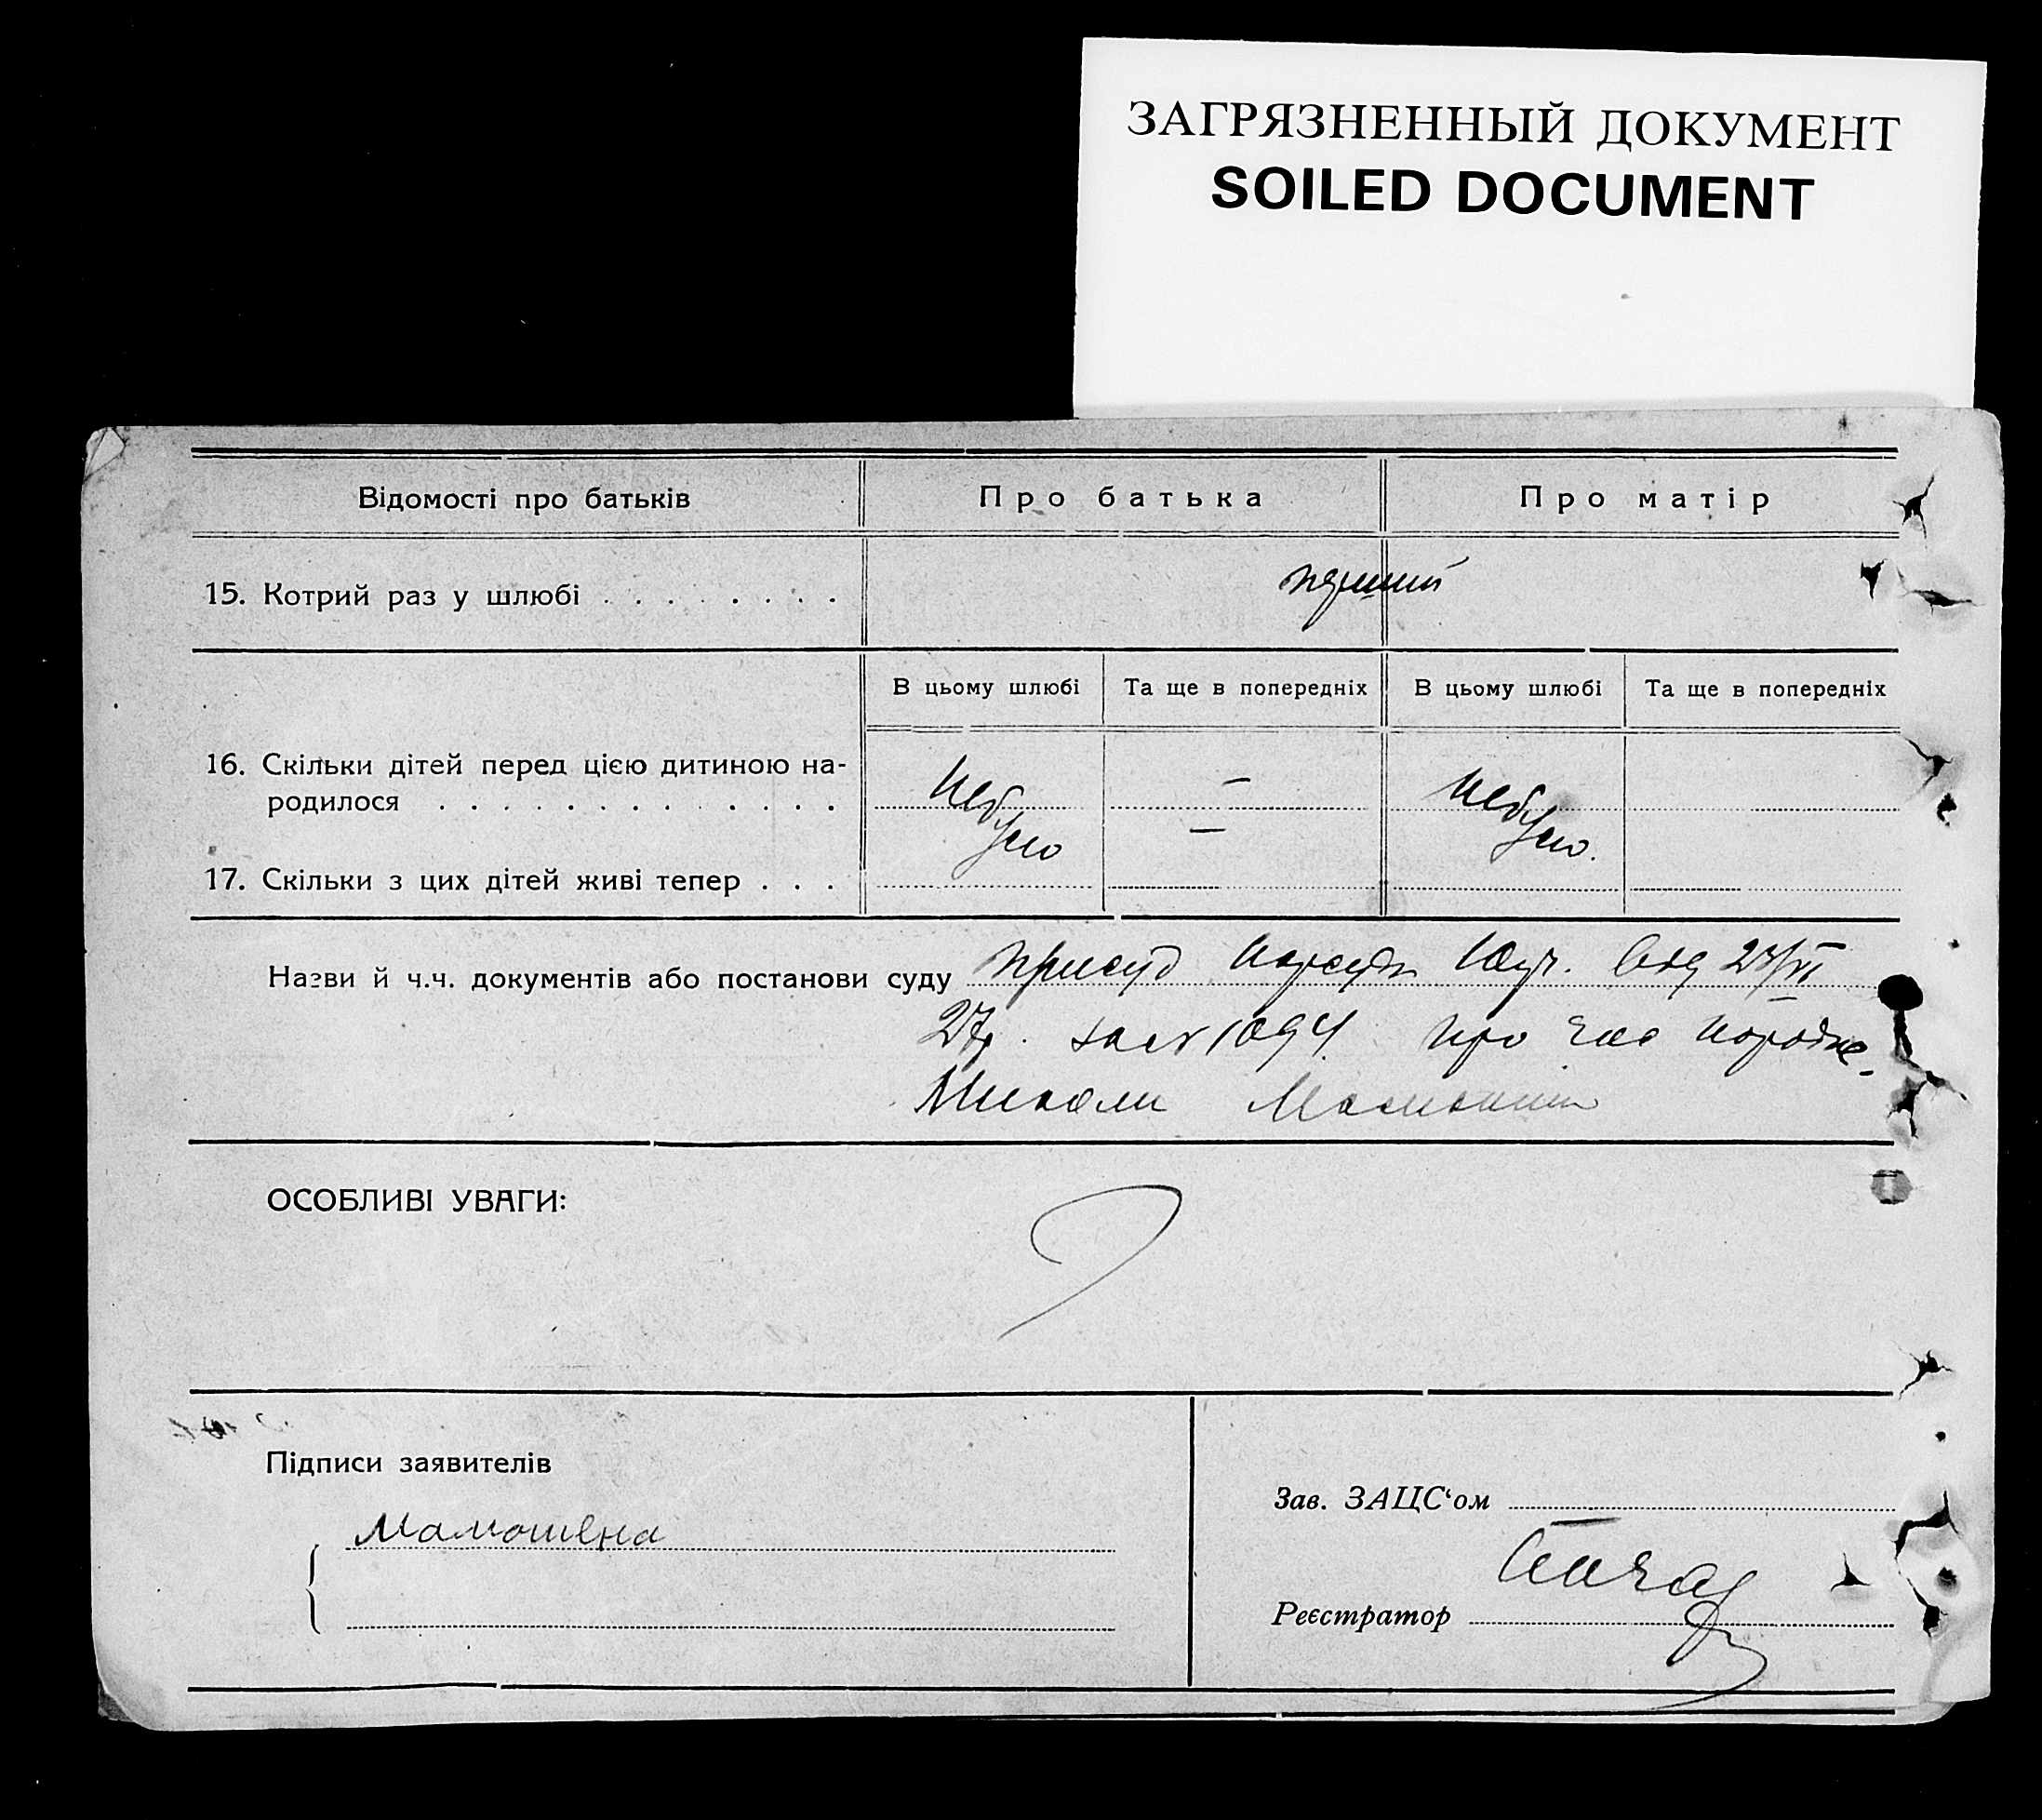 ЗАГРЯЗНЕННЫЙ ДОКУМЕНТ
SOILED DOCUMENT
Відомості про батьків Про батька Про матір
15. Котрий раз у шлюбі . . . . . . . . перший
В цьому шлюбі Та ще в попередніх В цьому шлюбі Та ще в попередніх
16. Скільки дітей перед цією дитиною на-
родилося . . . . . . . . . . . . . небуло — небуло.
—
17. Скільки з цих дітей живі тепер . . .
Назви й ч.ч. документів або постанови суду присуд від
27р. 1094 про час
Миколи
ОСОБЛИВІ УВАГИ:
Підписи заявителів
Мамошена
Зав. ЗАЦС‘ом
Реєстратор